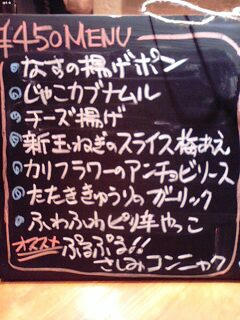 ¥450MENU
なすの揚げポン
じゃこカブナムル
チーズ揚げ
新玉ねぎのスライス梅あえ
カリフラワーのアンチョビソース
たたききゅうりのガーリック
ふわふわピリ辛やっこ
オススメ ぷるぷる!!
さしみコンニャク